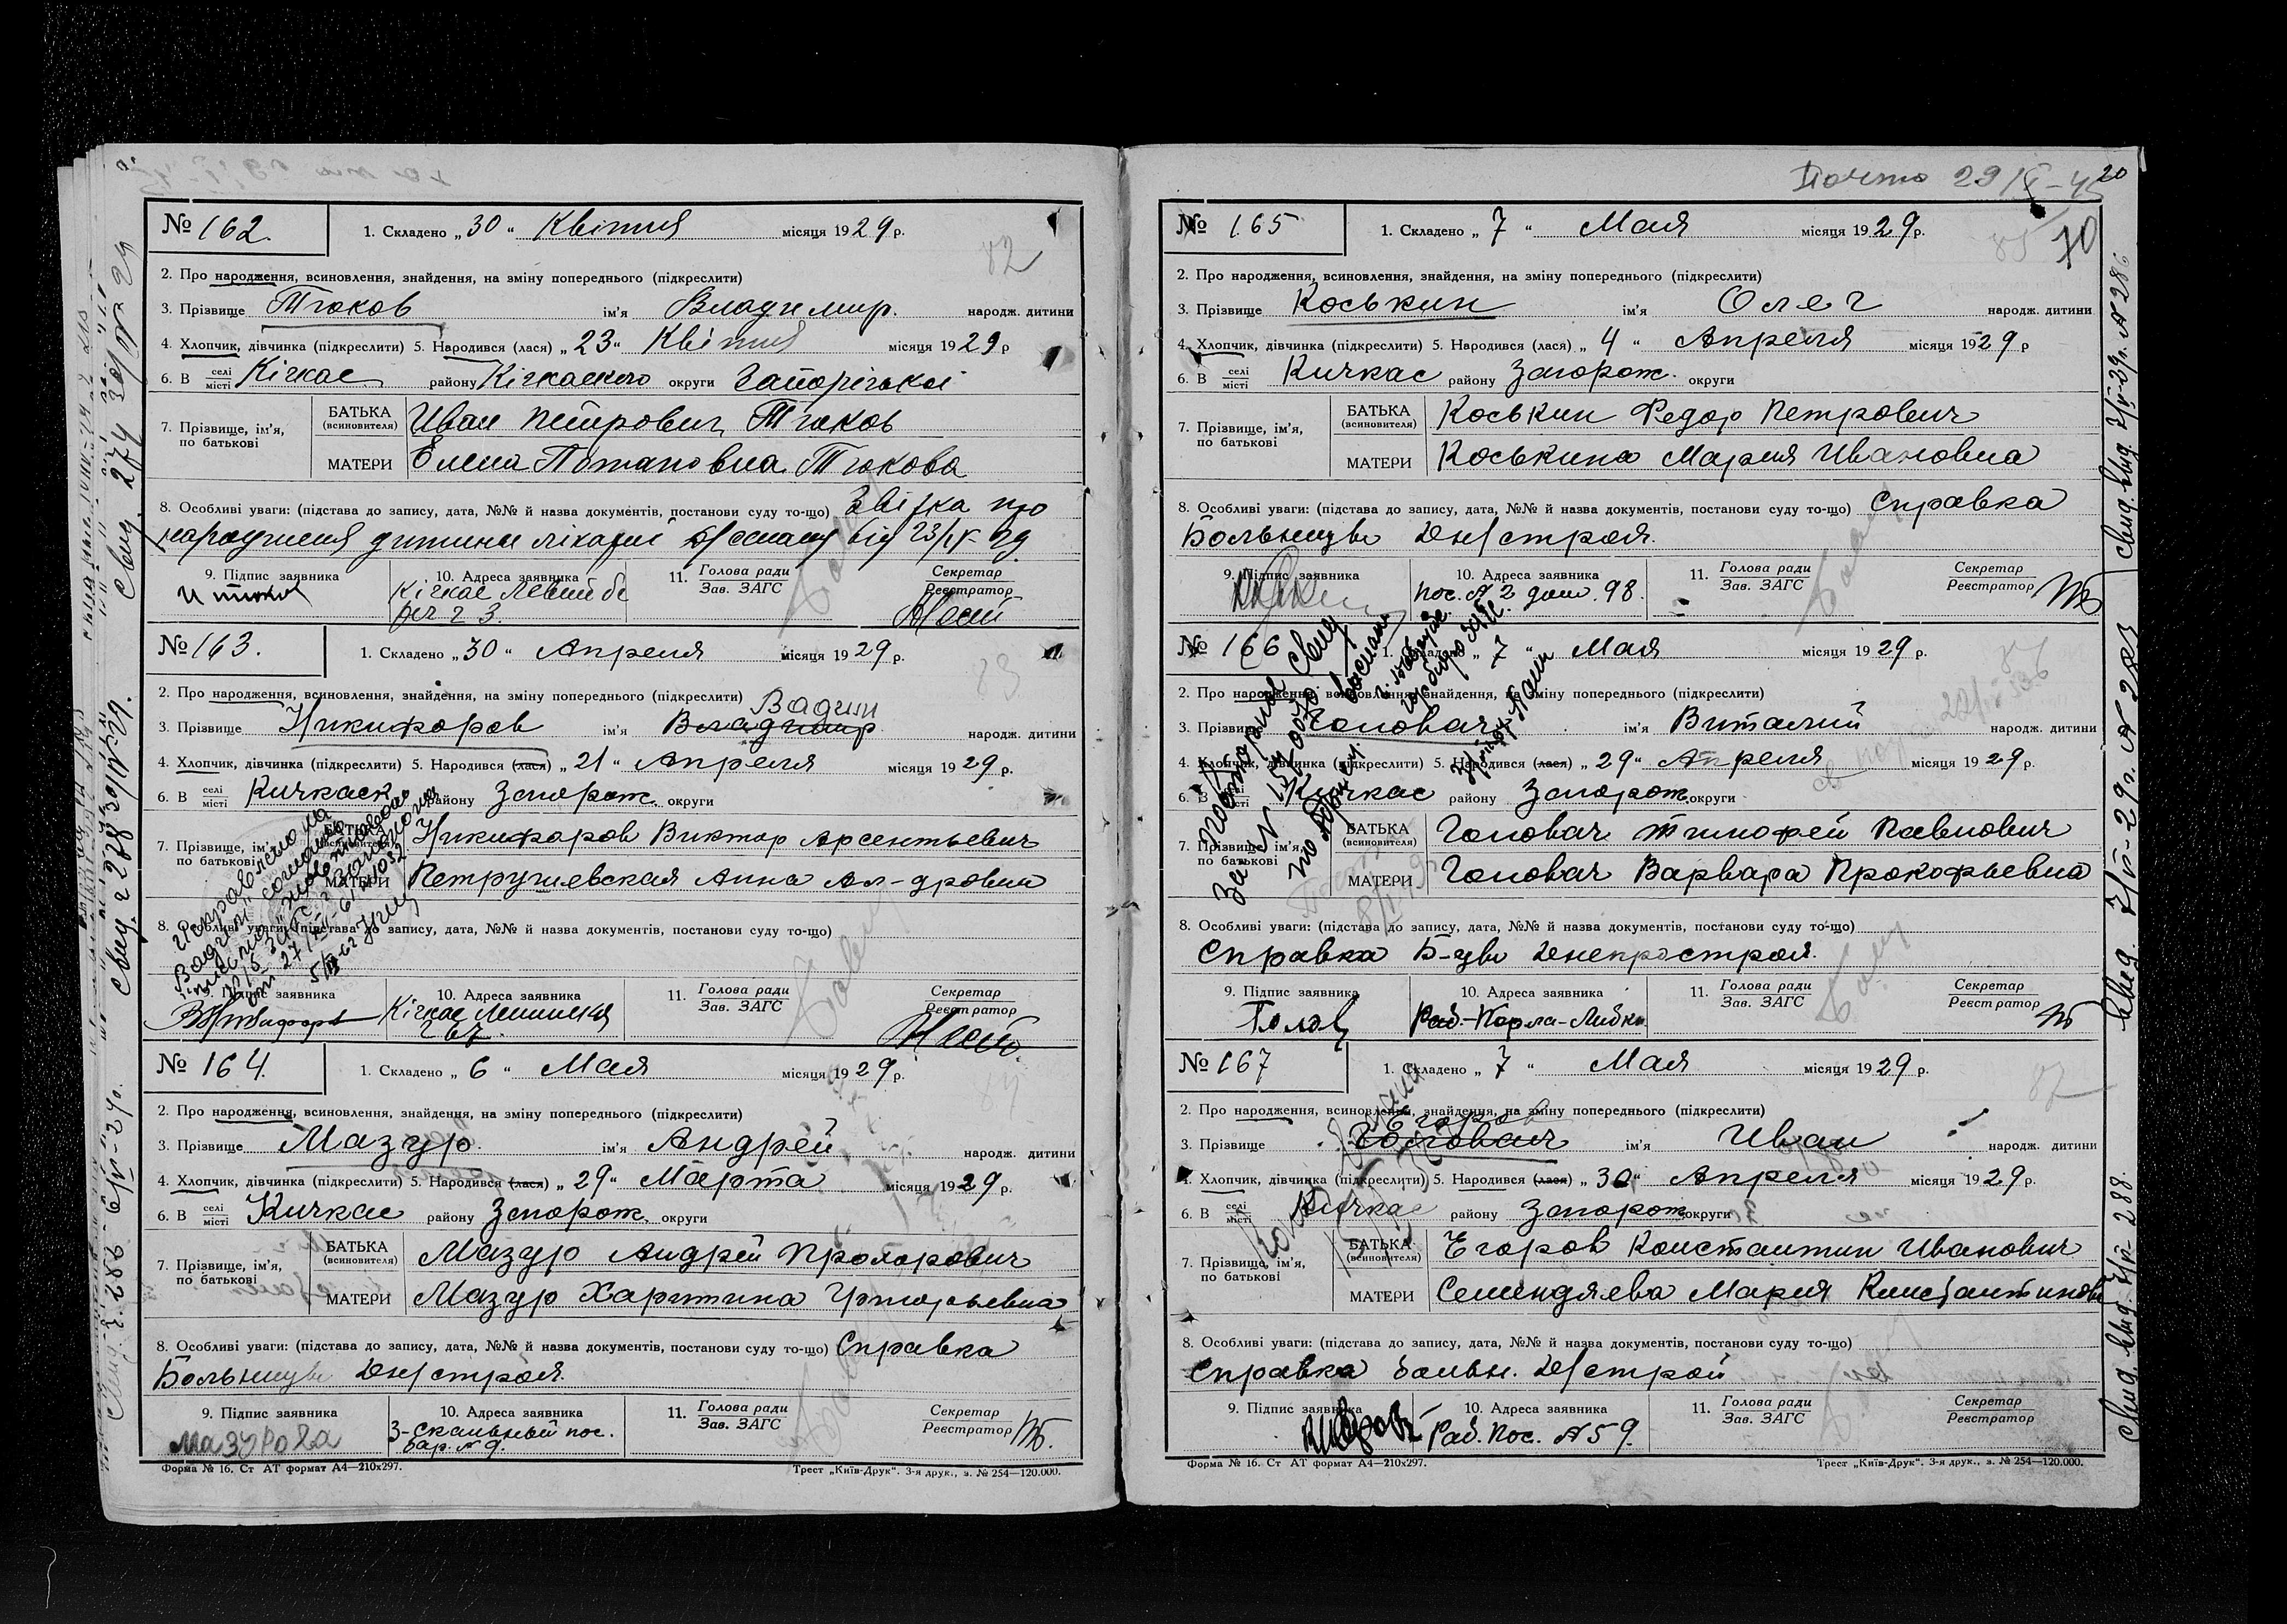 № 162. 1. Складено „ 30 “ Квітня місяця 1929 р.
82
2. Про народження, всиновлення, знайдення, на зміну попереднього (підкреслити)
3. Прізвище Тюков ім'я Владимир. народж. дитини
4. Хлопчик, дівчинка (підкреслити) 5. Народився (лася) „ 23 “ Квітня місяця 1929 р
6. В селі місті Кічкас району Кічкаського округи Запорізької
7. Прізвище, ім'я, по батькові
БАТЬКА (всиновителя) Иван Петрович Тюков
МАТЕРИ Елена Потаповна Тюкова
8. Особливі уваги: (підстава до запису, дата, №№ й назва документів, постанови суду то-що) Звістка про
народження дитини лікарні від 23/IV-29
9. Підпис заявника 10. Адреса заявника 11. Голова ради Зав. ЗАГС Секретар Реєстратор
Кічкас Левий бе
рег 23.
Свид. 274 30/IV 29
№ 163. 1. Складено „ 30 “ Апреля місяця 1929 р.
83
2. Про народження, всиновлення, знайдення, на зміну попереднього (підкреслити)
Вадим
3. Прізвище Никифоров ім'я Владимир народж. дитини
4. Хлопчик, дівчинка (підкреслити) 5. Народився (лася) „ 21 “ Апреля місяця 1929 р.
6. В селі місті Кичкаск району Запорож. округи
7. Прізвище, ім'я, по батькові
БАТЬКА (всиновителя) Никифоров Виктор Арсентьевич
МАТЕРИ Петрушевская Анна Ал-дровна
8. Особливі уваги: (підстава до запису, дата, №№ й назва документів, постанови суду то-що)
Исправлено на
Вадим согласно
9. Підпис заявника 10. Адреса заявника 11. Голова ради Зав. ЗАГС Секретар Реєстратор
Кічкас Ленинская
267.
Свид. 278 30/IV-29.
№ 164. 1. Складено „ 6 “ Мая місяця 1929 р.
84
2. Про народження, всиновлення, знайдення, на зміну попереднього (підкреслити)
3. Прізвище Мазур. ім'я Андрей народж. дитини
4. Хлопчик, дівчинка (підкреслити) 5. Народився (лася) „ 29 “ Марта місяця 1929 р.
6. В селі місті Кичкас району Запорож. округи
7. Прізвище, ім'я, по батькові
БАТЬКА (всиновителя) Мазур Андрей Прохорович
МАТЕРИ Мазур Харитина Григорьевна
8. Особливі уваги: (підстава до запису, дата, №№ й назва документів, постанови суду то-що) Справка
Больницы Дн/строя.
9. Підпис заявника 10. Адреса заявника 11. Голова ради Зав. ЗАГС Секретар Реєстратор
Мазурова
3-Скальный пос.
бар. № 9.
Форма № 16. Ст АТ формат А4—210х297. Трест „Київ-Друк“. 3-я друк., з. № 254—120.000.
20
70
№ 165 1. Складено „ 7 “ Мая місяця 1929 р.
85
2. Про народження, всиновлення, знайдення, на зміну попереднього (підкреслити)
3. Прізвище Коськин ім'я Олег народж. дитини
4. Хлопчик, дівчинка (підкреслити) 5. Народився (лася) „ 4 “ Апреля місяця 1929 р
6. В селі місті Кичкас району Запорож. округи
7. Прізвище, ім'я, по батькові
БАТЬКА (всиновителя) Коськин Федор Петрович
МАТЕРИ Коськина Мария Ивановна
8. Особливі уваги: (підстава до запису, дата, №№ й назва документів, постанови суду то-що) Справка
Больницы Дн/строя.
9. Підпис заявника 10. Адреса заявника 11. Голова ради Зав. ЗАГС Секретар Реєстратор
пос. № 2 дом. 98.
№ 166 1. Складено „ 7 “ Мая місяця 1929 р.
86
2. Про народження, всиновлення, знайдення, на зміну попереднього (підкреслити)
3. Прізвище Головач ім'я Виталий народж. дитини
4. Хлопчик, дівчинка (підкреслити) 5. Народився (лася) „ 29 “ Апреля місяця 1929 р.
6. В селі місті Кичкас району Запорож. округи
7. Прізвище, ім'я, по батькові
БАТЬКА (всиновителя) Головач Тимофей Павлович
МАТЕРИ Головач Варвара Прокофьевна
8. Особливі уваги: (підстава до запису, дата, №№ й назва документів, постанови суду то-що)
Справка Б-цы Днепростроя.
9. Підпис заявника 10. Адреса заявника 11. Голова ради Зав. ЗАГС Секретар Реєстратор
Раб.-Карла-Либкн
Свид. 7/V-29 г. № 285
№ 167 1. Складено „ 7 “ Мая місяця 1929 р.
2. Про народження, всиновлення, знайдення, на зміну попереднього (підкреслити)
Егоров
3. Прізвище Головач ім'я Иван народж. дитини
4. Хлопчик, дівчинка (підкреслити) 5. Народився (лася) „ 30 “ Апреля місяця 1929 р.
6. В селі місті Кичкас району Запорож. округи
7. Прізвище, ім'я, по батькові
БАТЬКА (всиновителя) Егоров Константин Иванович
МАТЕРИ Семендяева Мария Константинов
8. Особливі уваги: (підстава до запису, дата, №№ й назва документів, постанови суду то-що)
Справка больн. Дн/строй
9. Підпис заявника 10. Адреса заявника 11. Голова ради Зав. ЗАГС Секретар Реєстратор
Раб. пос. № 59.
Форма № 16. Ст АТ формат А4—210х297. Трест „Київ-Друк“. 3-я друк., з. № 254—120.000.